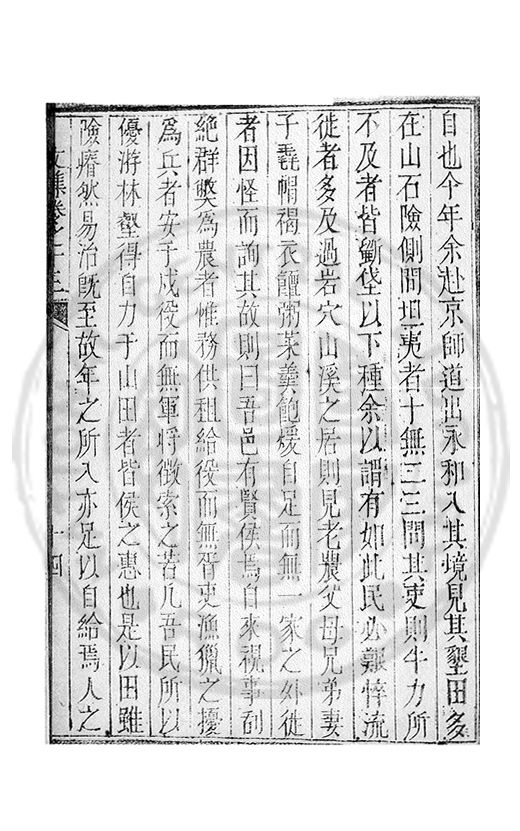 自也今年余赴京師道出永和入其境見其墾田多
在山石險側間坦夷者十無二三問其吏則牛力所
不及者皆斸垡以下種余以謂有如此民必艱悴流
徙者多及過岩穴山溪之居則見老農父母兄弟妻
子氊帽褐衣饘粥菜羮飽煖自足而無一家之外徙
者因怪而詢其故則曰吾邑有賢侯焉自來視事剷
絶群弊為農者惟務供租給役而無胥吏漁獵之擾
為兵者安于戍役而無軍將徵索之苦凡吾民所以
優游林壑得自力于山田者皆侯之惠也是以田雖
險瘠然易治既至故年之所入亦足以自給焉人之
文集卷之十三
十四